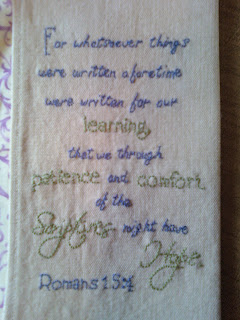 For whatsoever things
were written aforetime
were written for our
learning,
that we through
patience and comfort
of the
Scriptures might have
Hope.
Romans 15:4